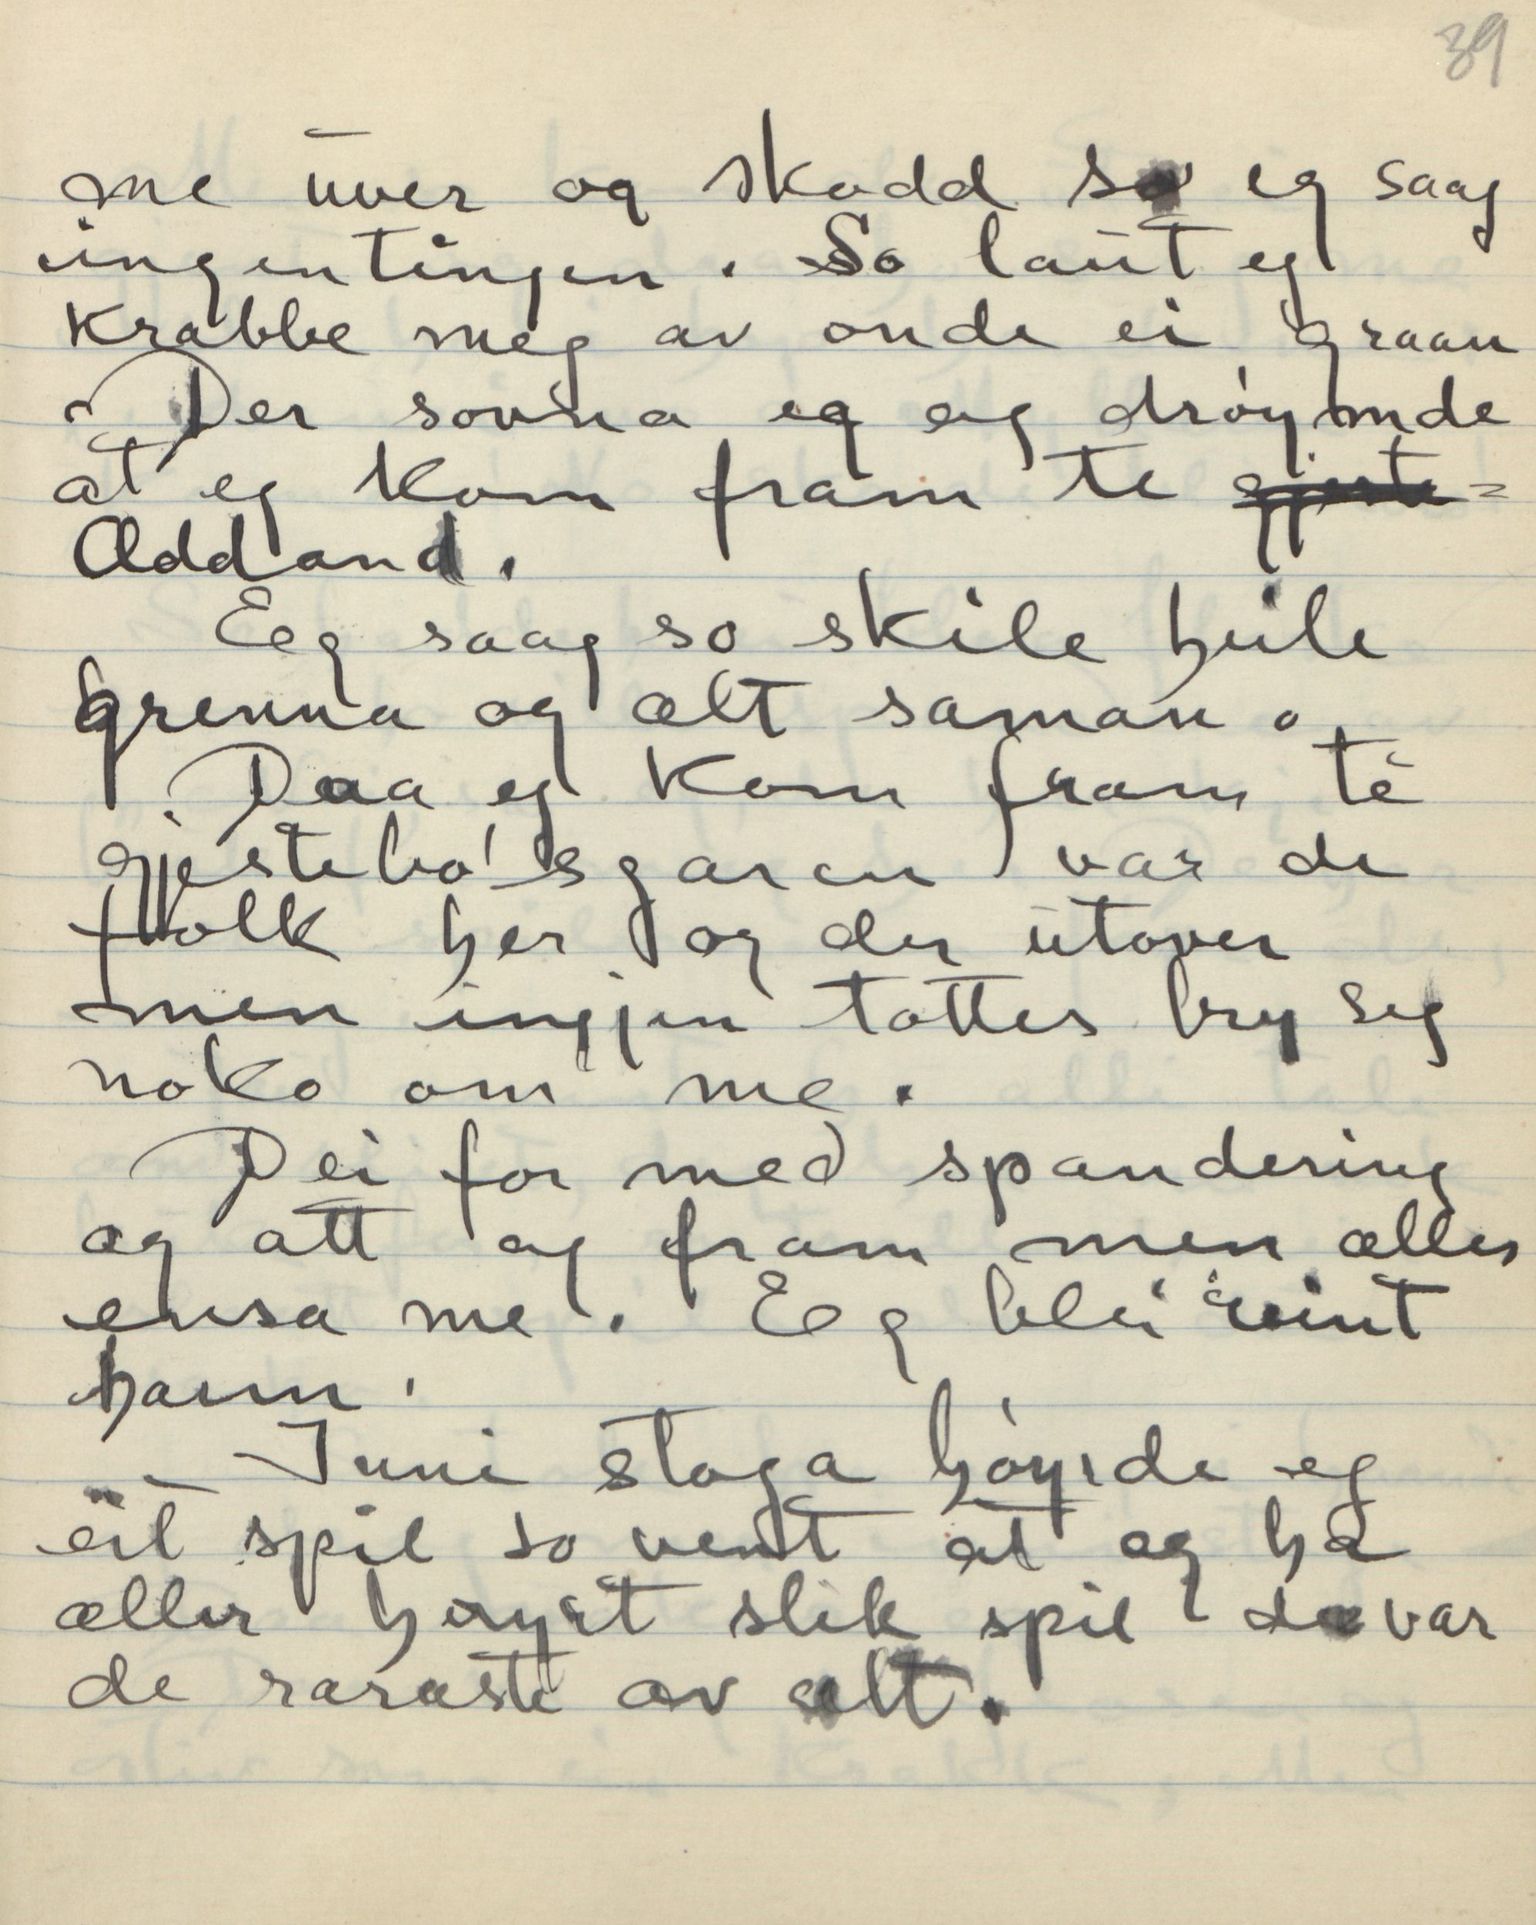 39
me uver og skodd so eg saag
ingentingen. So laut eg
krabbe meg av onde ei graan
Der sovna eg og drøymde
at eg kom fram te gjeste=
Oddand.
Eeg saag so skile heile
grenna og ælt saman.
Daa eg kom fram te
gjestebo'sgaren var de
folk her og der utover
men ingjen tottes bry seg
noko om me.
Dei for med spandering
og att og fram men æller
ensa me. Eeg blei reint
harm.
Inni stoga høyrde eg
eit spil so vent at eg ha
æller høyrt slik spil de var
de raraste av ælt.